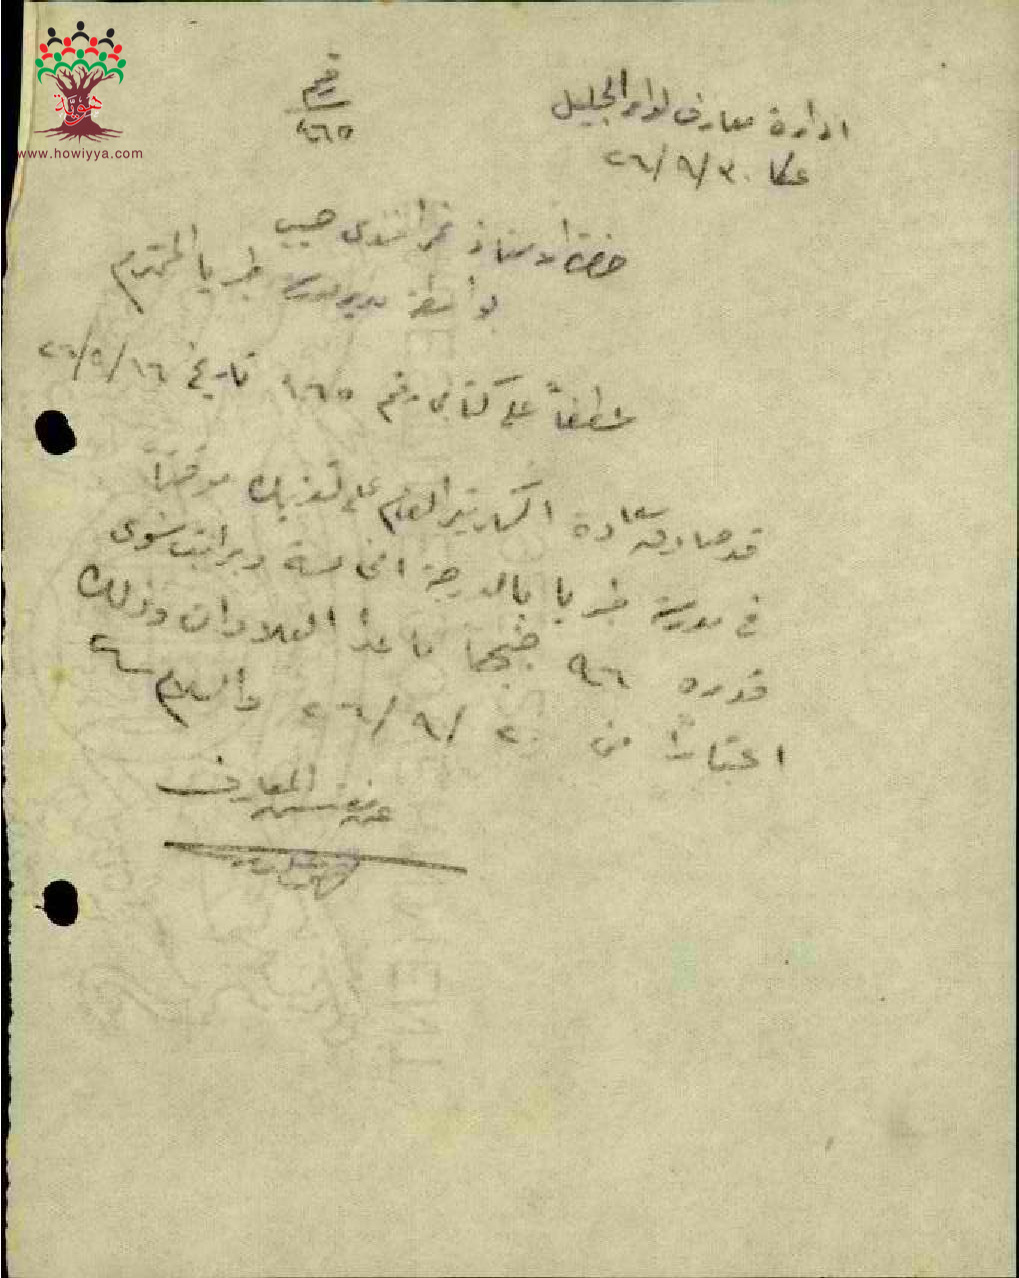 هوية
www.howiyya.com
رقم
٩٦٥
ادارة معارف لواء الجليل
عكا ٣٠/٩/٢٦
حضرة الاستاذ نمر افندي حبيب
بواسطة مدير مدرسة طبريا المحترم
عطفاً على كتابي رقم ٩٦٥ تاريخ ١٦/٩/٢٦
قد صادق سعادة السكرتير العام على تعيينك موقتاً
في مدرسة طبريا بالدرجة الخامسة وبراتب سنوي
قدره ٩٦ جنيهاً ما عدا العلاوات وذلك
اعتباراً من ٢٠/٩/٢٦ والسلام
مفتش المعارف